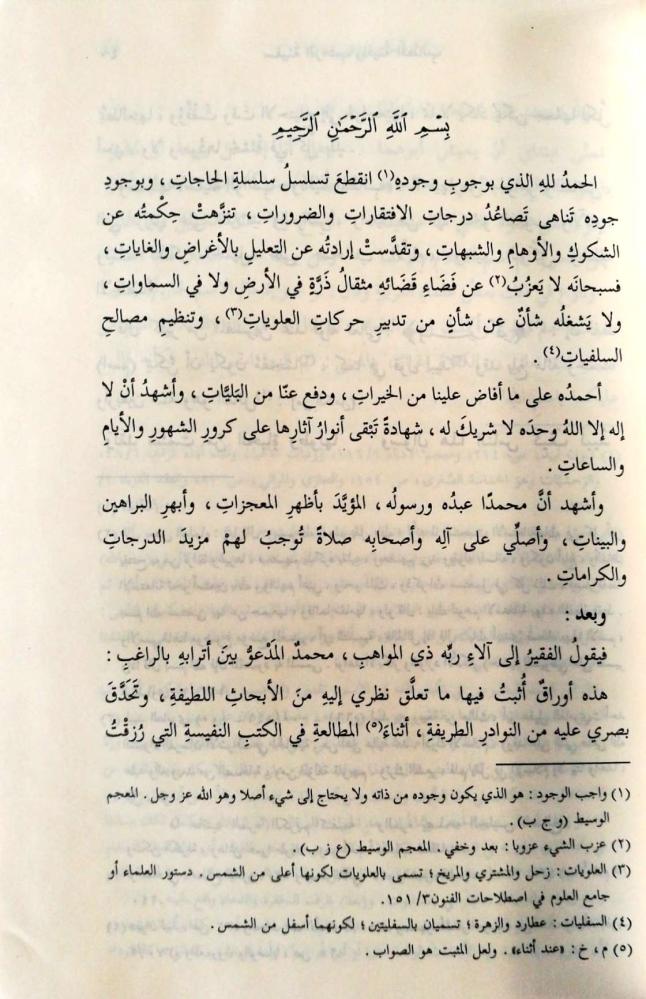 بِسْمِ اللَّهِ الرَّحْمَٰنِ الرَّحِيمِ
الحمدُ للهِ الذي بوجوبِ وجودِه(١) انقطعَ تسلسلُ سلسلةِ الحاجاتِ ، وبوجودِ
جودِه تَناهى تَصاعُدُ درجاتِ الافتقاراتِ والضروراتِ ، تنزَّهتْ حِكْمتُه عن
الشكوكِ والأوهامِ والشبهاتِ ، وتقدَّستْ إرادتُه عن التعليلِ بالأغراضِ والغاياتِ ،
فسبحانَه لا يَعزُبُ(٢) عن فَضَاءِ قَضَائِه مثقالُ ذَرَّةٍ في الأرضِ ولا في السماواتِ ،
ولا يَشغلُه شأنٌ عن شأنٍ من تدبيرِ حركاتِ العلوياتِ(٣) ، وتنظيمِ مصالحِ
السلفياتِ(٤) .
أحمدُه على ما أفاض علينا من الخيراتِ ، ودفع عنّا من البَليَّاتِ ، وأشهدُ أنْ لا
إله إلا اللهُ وحدَه لا شريكَ له ، شهادةً تَبْقى أنوارُ آثارِها على كرورِ الشهورِ والأيامِ
والساعاتِ .
وأشهد أنَّ محمدًا عبدُه ورسولُه ، المؤيَّدَ بأظهرِ المعجزاتِ ، وأبهرِ البراهين
والبيناتِ ، وأصلِّي على آلِه وأصحابِه صلاةً تُوجبُ لهمْ مزيدَ الدرجاتِ
والكراماتِ .
وبعد :
فيقولُ الفقيرُ إلى آلاءِ ربِّه ذي المواهبِ ، محمدٌ المَدْعوُّ بينَ أترابهِ بالراغبِ :
هذه أوراقٌ أُثبتُ فيها ما تعلَّق نظري إليهِ منَ الأبحاثِ اللطيفةِ ، وتَحَدَّقَ
بصري عليه من النوادرِ الطريفةِ ، أثناءَ(٥) المطالعةِ في الكتبِ النفيسةِ التي رُزقْتُ
(١) واجب الوجود : هو الذي يكون وجوده من ذاته ولا يحتاج إلى شيء أصلا وهو الله عز وجل . المعجم
الوسيط (و ج ب) .
(٢) عزب الشيء عزوبا : بعد وخفي . المعجم الوسيط (ع ز ب) .
(٣) العلويات : زحل والمشتري والمريخ ؛ تسمى بالعلويات لكونها أعلى من الشمس . دستور العلماء أو
جامع العلوم في اصطلاحات الفنون٣/ ١٥١ .
(٤) السفليات : عطارد والزهرة ؛ تسميان بالسفليتين ؛ لكونهما أسفل من الشمس .
(٥) م ، خ : «عند أثناء» . ولعل المثبت هو الصواب .